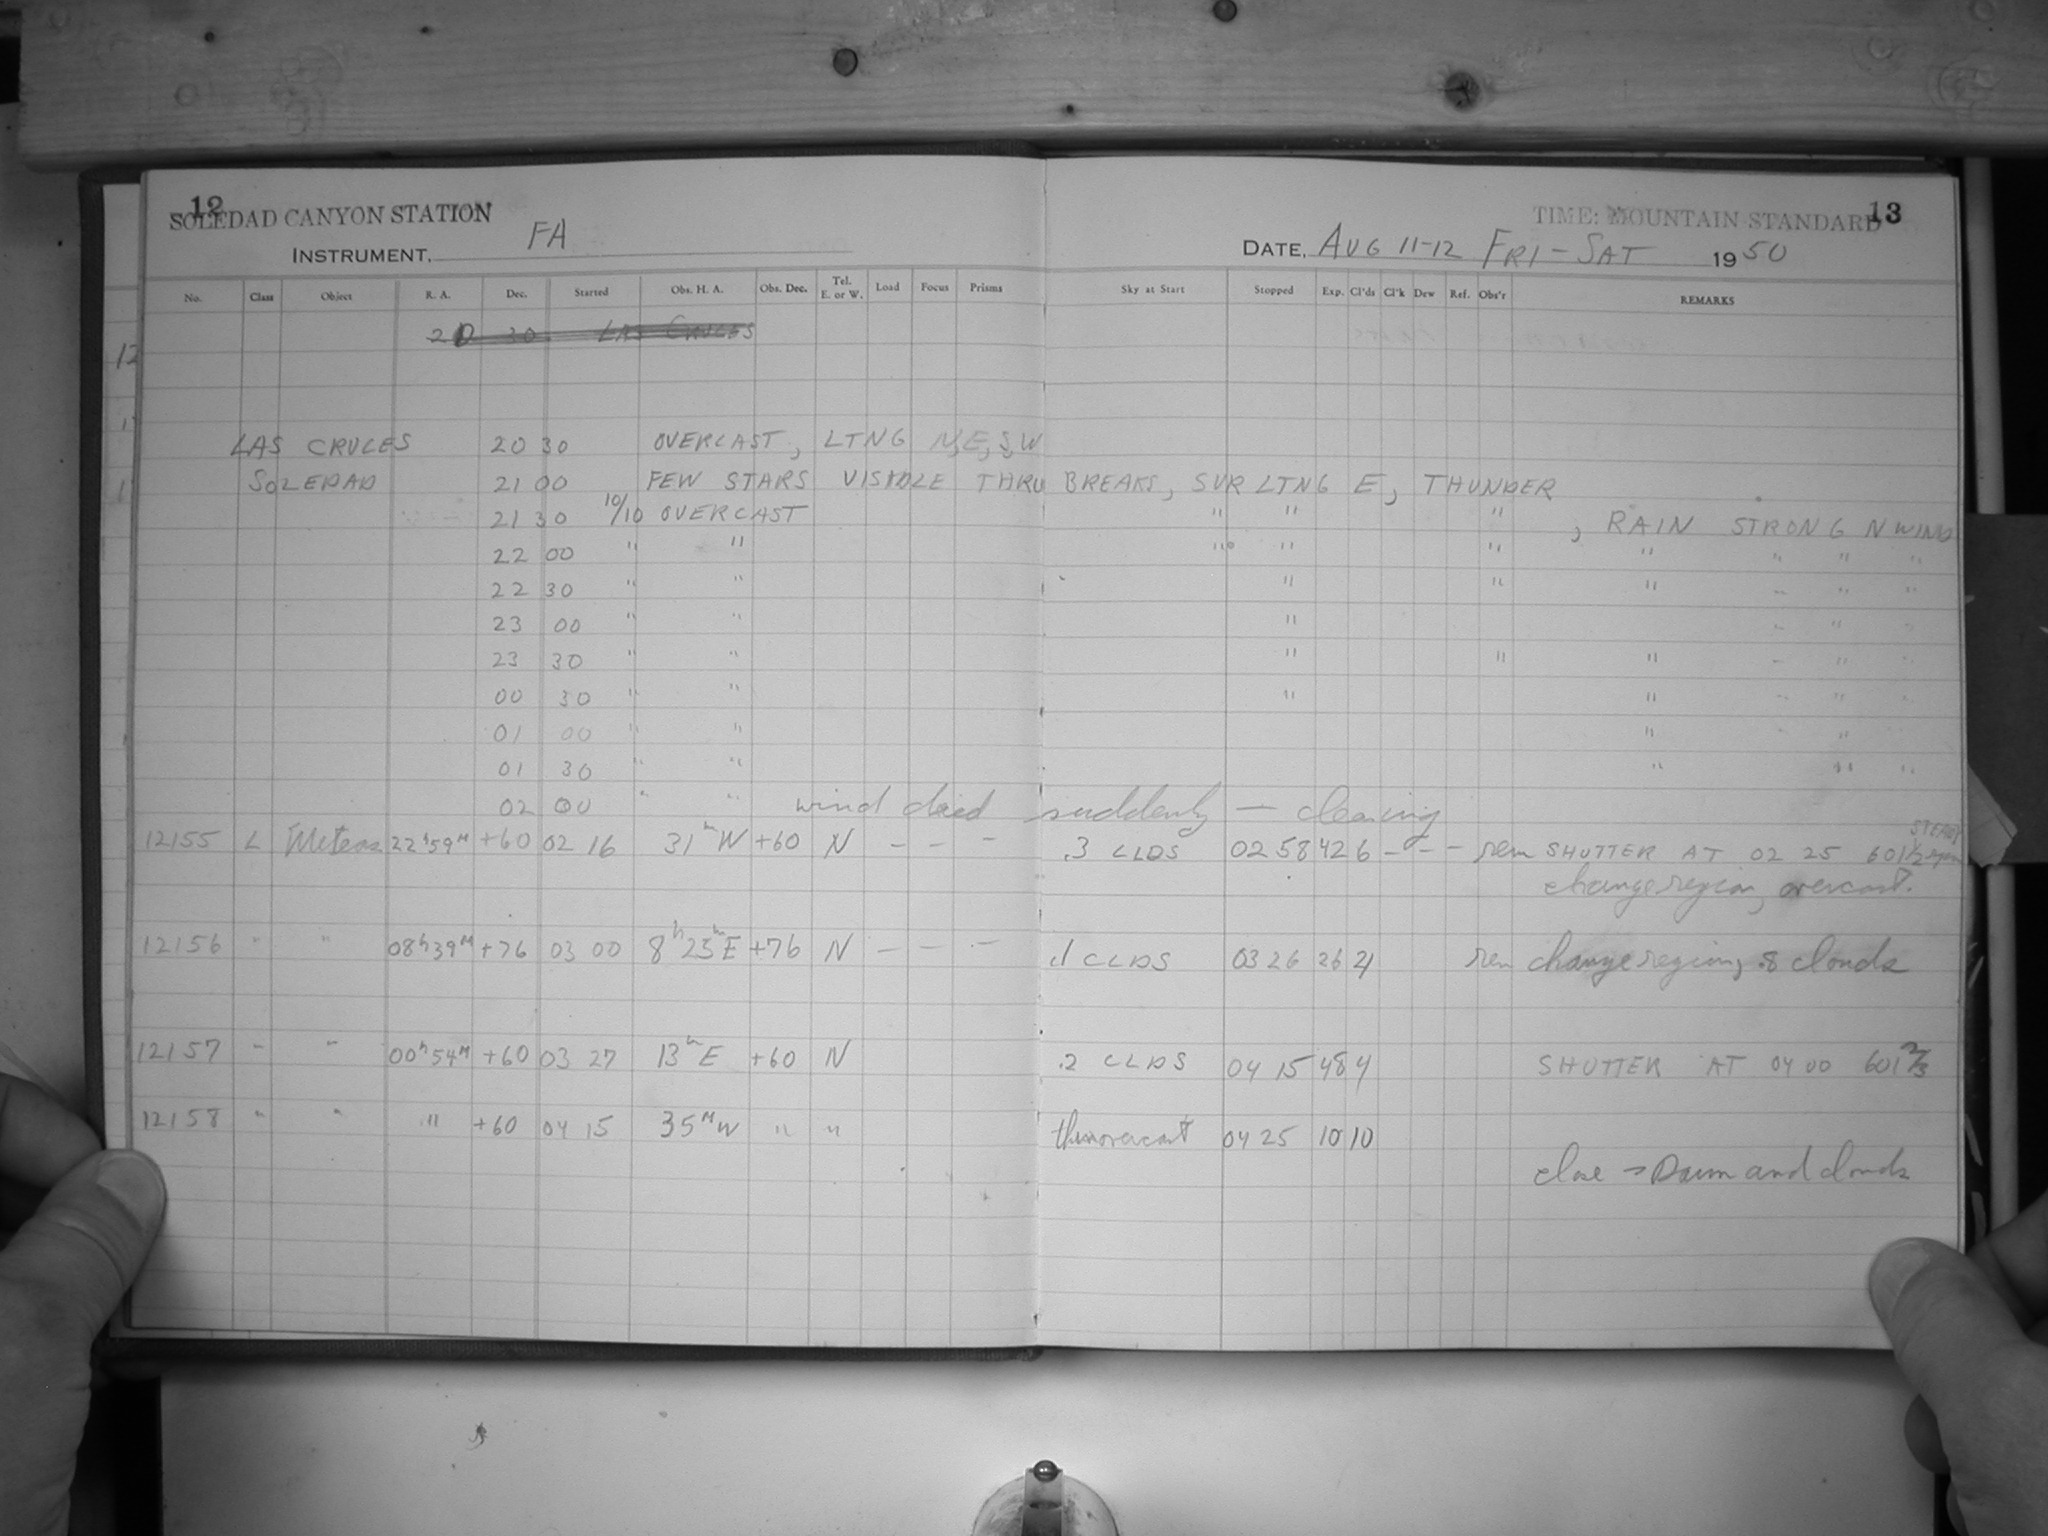 12
SOLEDAD CANYON STATION
INSTRUMENT, FA
No. Class Object R. A. Dec. Started Obs. H. A. Obs. Dec. Tel. E. or W. Load Focus Prisms
20 30 LAS CRUCES
13
TIME: MOUNTAIN STANDARD
DATE, AUG 11-12 FRI - SAT 1950
Sky at Start Stopped Exp. Cl'ds Cl'k Dew Ref. Obs'r REMARKS
LAS CRUCES 20 30 OVERCAST, LTNG N,E,S,W
SOLEDAD 21 00 FEW STARS VISIBLE THRU BREAKS, SVR LTNG E, THUNDER
21 30 10/10 OVERCAST " " " , RAIN STRONG N WIND
22 00 " " " " " " " " "
22 30 " " " " " " " "
23 00 " " " " " "
23 30 " " " " " " " "
00 30 " " " " " " "
01 00 " " " " " "
01 30 " " " " "
02 00 " " wind died suddenly — clearing
12155 L Meteors 22h59M +60 02 16 31m W +60 N - - - .3 CLDS 02 58 42 6 - - - rem SHUTTER AT 02 25 601 1/2 rpm STEADY
change region, overcast.
12156 " " 08h39M +76 03 00 8h 25m E +76 N - - - .1 CLDS 03 26 26 2 rem change region, .8 clouds
12157 " " 00h54M +60 03 27 13m E +60 N .2 CLDS 04 15 48 4 SHUTTER AT 04 00 601 2/3
12158 " " " +60 04 15 35M W " " thin overcast 04 25 10 10
close - Dawn and clouds